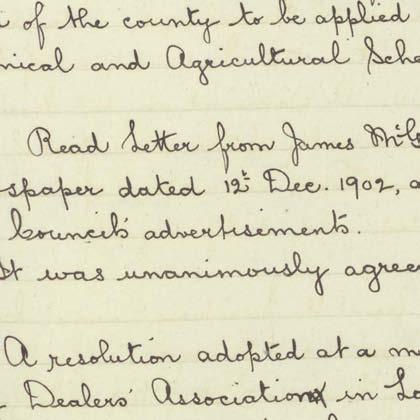 of the county to be applied
nical and Agricultural Sche
Read Letter from James McC
spaper dated 12th Dec. 1902, a
Council's advertisements.
It was unanimously agree
A resolution adopted at a m
Dealers' Association in Lo